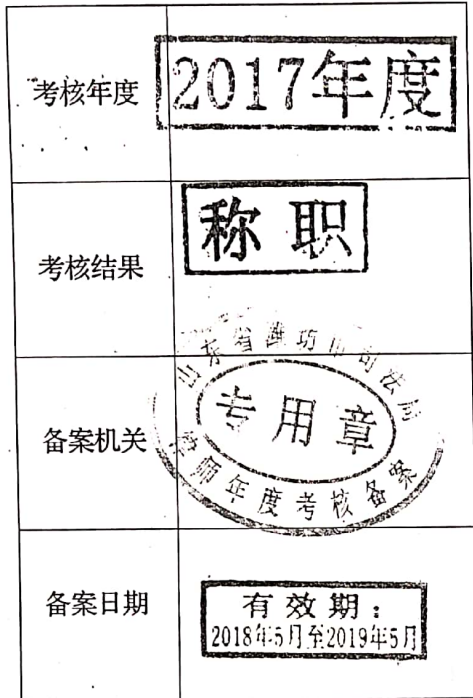 考核年度
2017年度
考核结果
称职
备案机关
山东省潍坊市司法局
专用章
律师年度考核备案
备案日期
有效期：
2018年5月至2019年5月